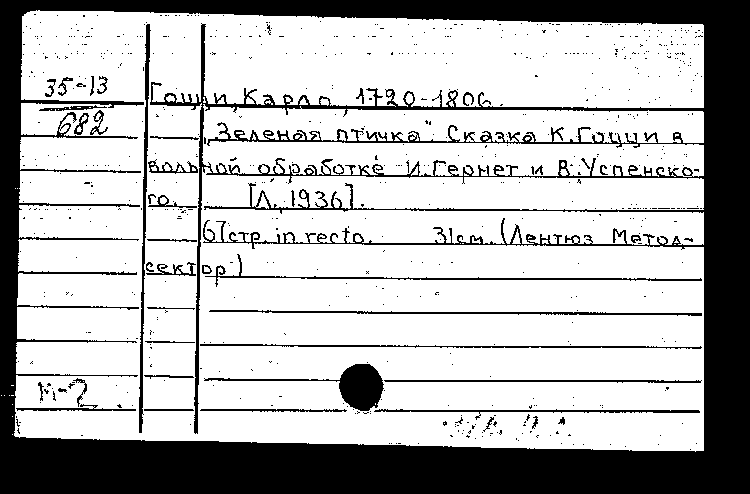 35-13
682
Гоцци, Карло, 1720-1806.
„Зеленая птичка“. Сказка К. Гоцци в
вольной обработке И. Гернет и В. Успенско-
го. [Л., 1936].
67 стр. in recto. 31 см. (Лентюз Метод-
сектор)
М-2